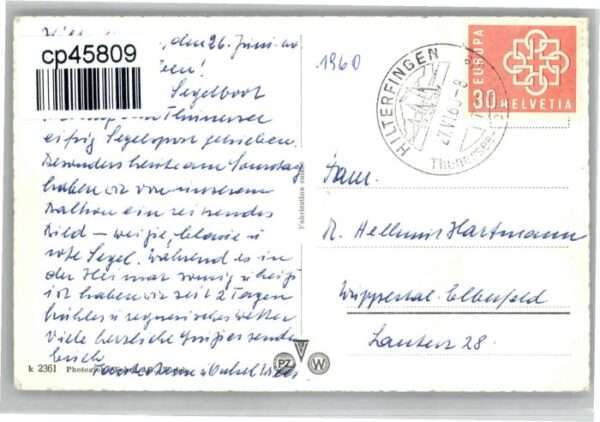 cp45809
, den 26. Juni 60
Segelboot
Thunersee
eifrig Segelsport getrieben.
Besonders heute am Sonntag
haben wir von unserem
Balkon ein reizendes
Bild – weiße, blaue u
rote Segel. Während es in
der Heimat sonnig u heiß
ist haben wir seit 2 Tagen
kühles u regnerisches Wetter
Viele herzliche Grüße senden
Euch
k 2361 Photo
Fabrication suisse
1960
HILTERFINGEN
27.VI.60-8
Thunersee
EUROPA
30 HELVETIA
Fam.
Hellmut Hartmann
Wuppertal-Elberfeld
28.
PZ W